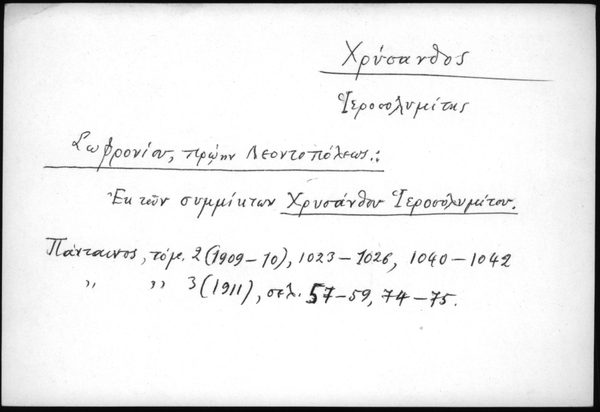 Χρύσανθος
Ἱεροσολυμίτης
Σωφρονίου, πρώην Λεοντοπόλεως.:
Ἐκ τῶν συμμίκτων Χρυσάνθου Ἱεροσολυμίτου.
Πάνταινος, τόμ. 2 (1909-10), 1023-1026, 1040-1042
,, ,, 3 (1911), σελ. 57-59, 74-75.